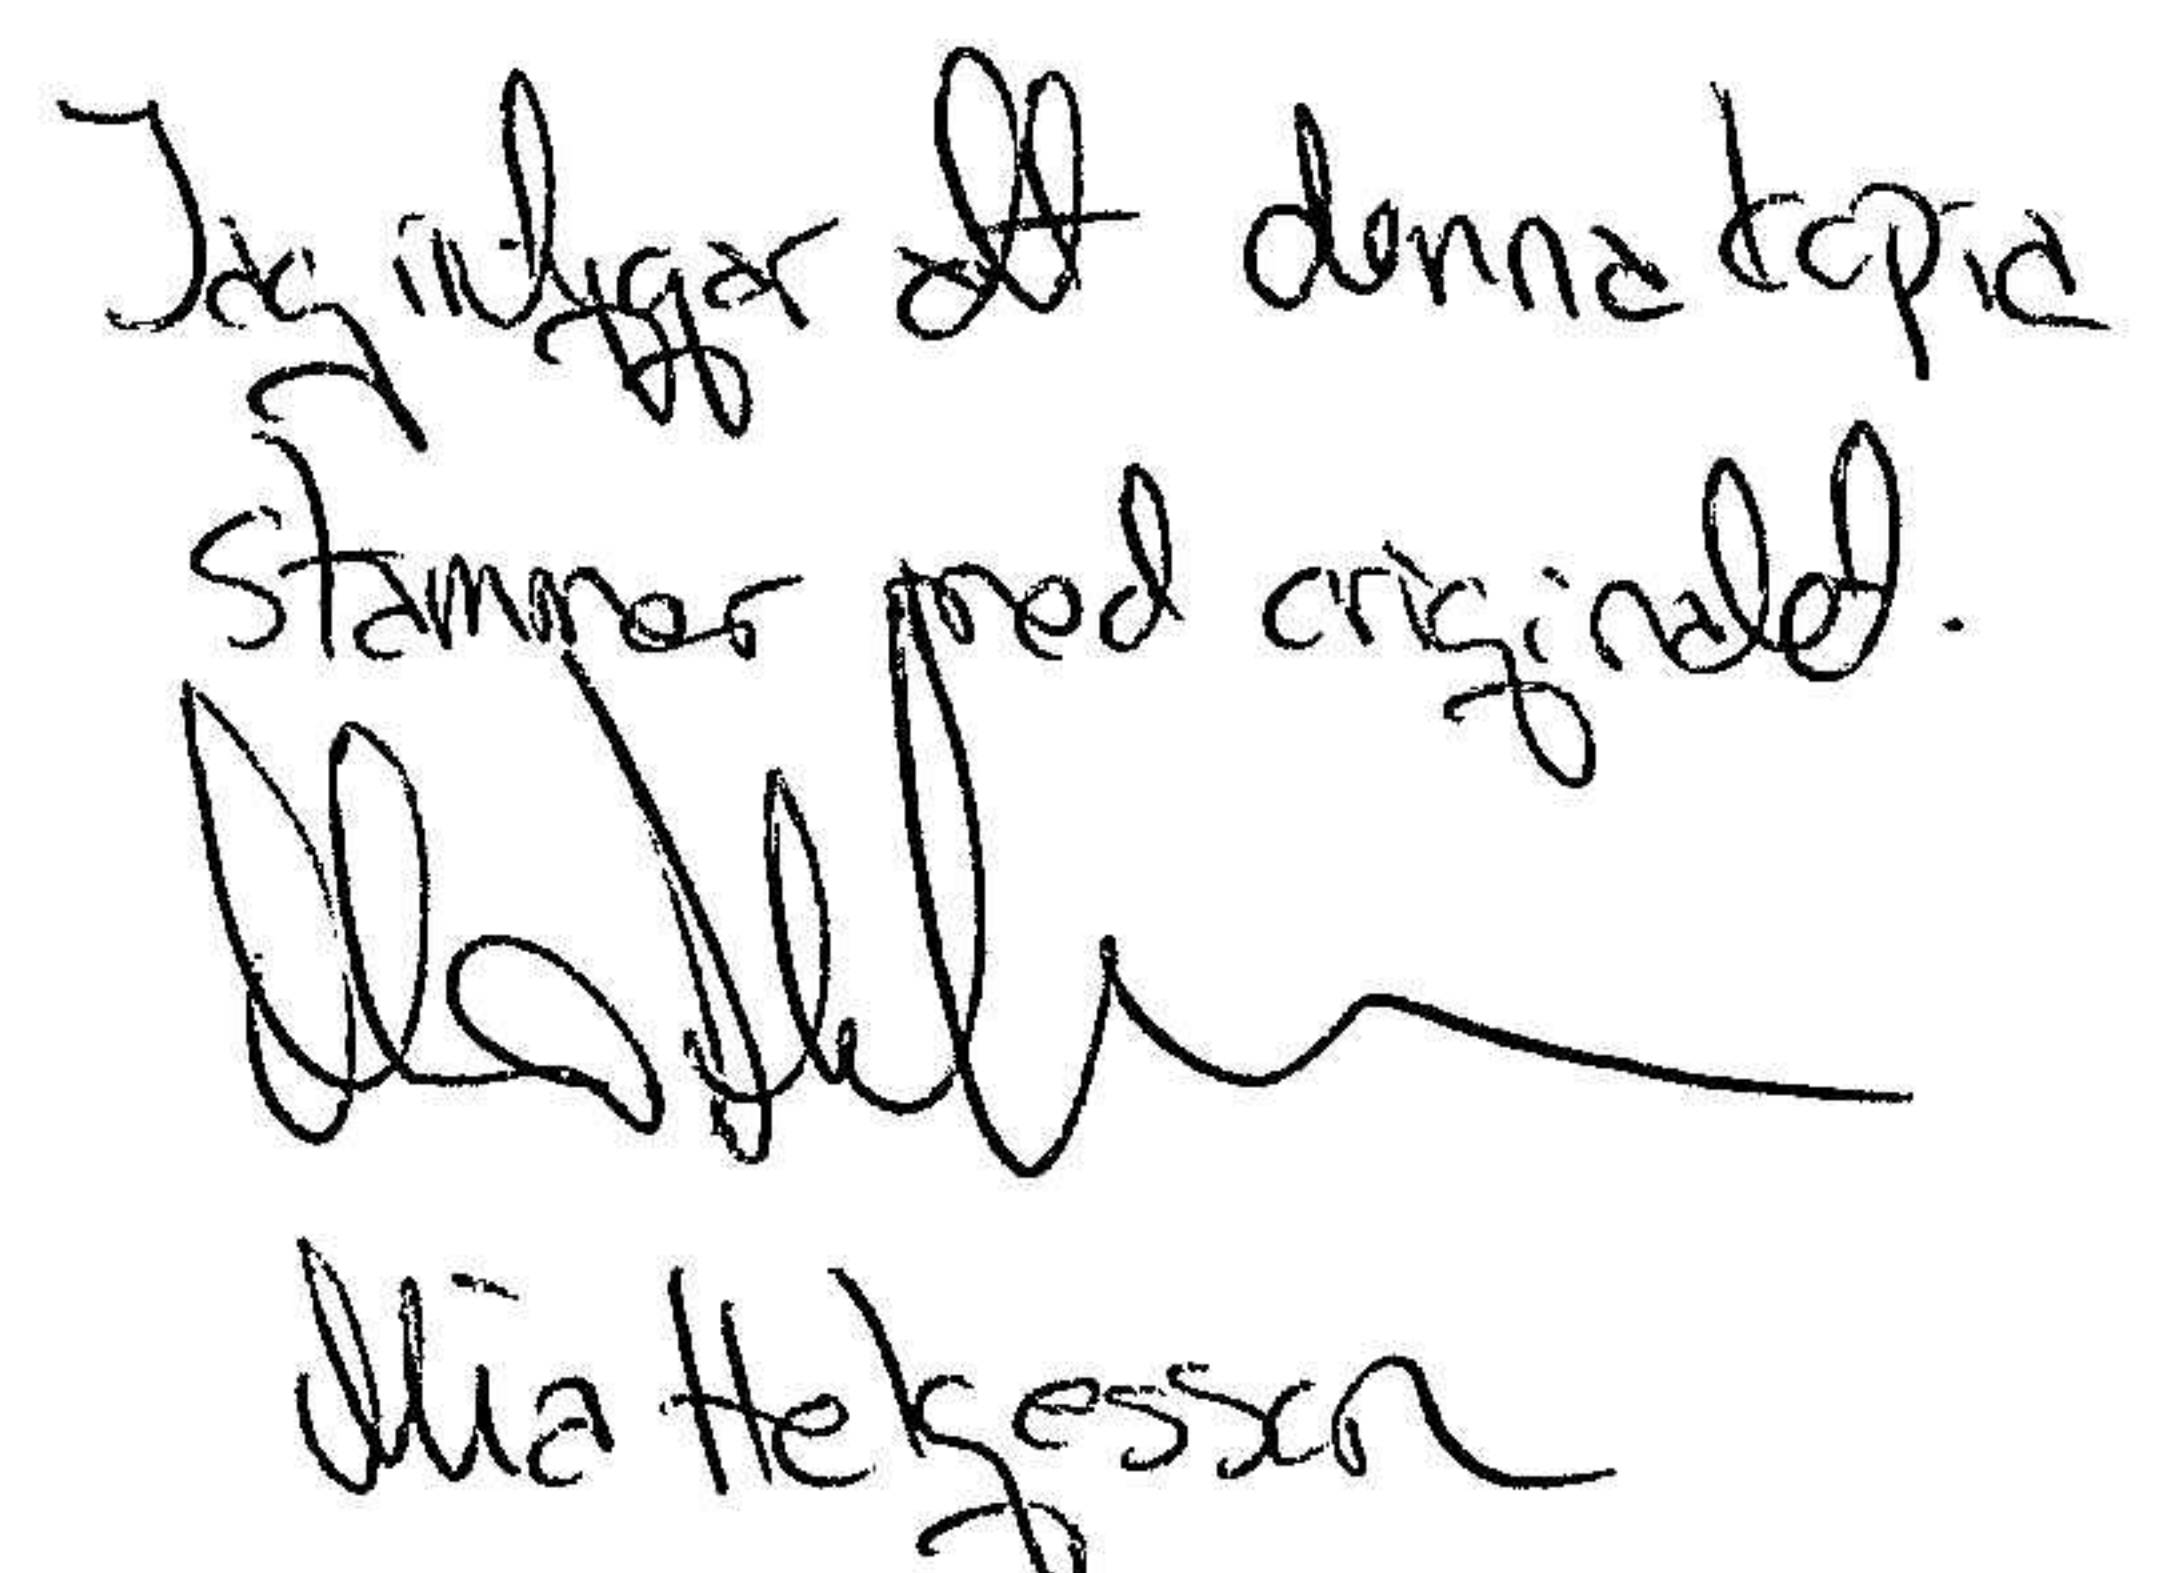 Jag intygar att denna kopia
stämmer med originalet.
Mia Helgesson